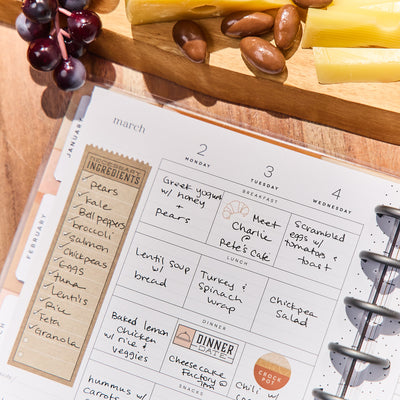 march
JANUARY
FEBRUARY
NECESSARY
INGREDIENTS
✓ pears
✓ Kale
✓ Bell peppers
✓ broccoli
✓ salmon
✓ chickpeas
✓ eggs
✓ tuna
✓ lentils
✓ Rice
✓ Feta
✓ Granola
2
MONDAY
3
TUESDAY
4
WEDNESDAY
BREAKFAST
Greek yogurt
w/ honey
+
pears
Meet
Charlie
@
Pete's Cafe
Scrambled
eggs w/
tomatoes +
toast
LUNCH
Lentil Soup
w/
bread
Turkey &
Spinach
wrap
Chickpea
Salad
DINNER
Baked lemon
chicken
w/ rice &
veggies
DINNER
DATE
Cheesecake
Factory @
7pm
CROCK
POT
Chili, w/
SNACKS
hummus w/
carrots